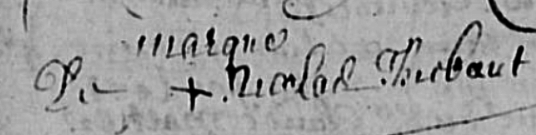 marque
De + Nicolas Thiebaut